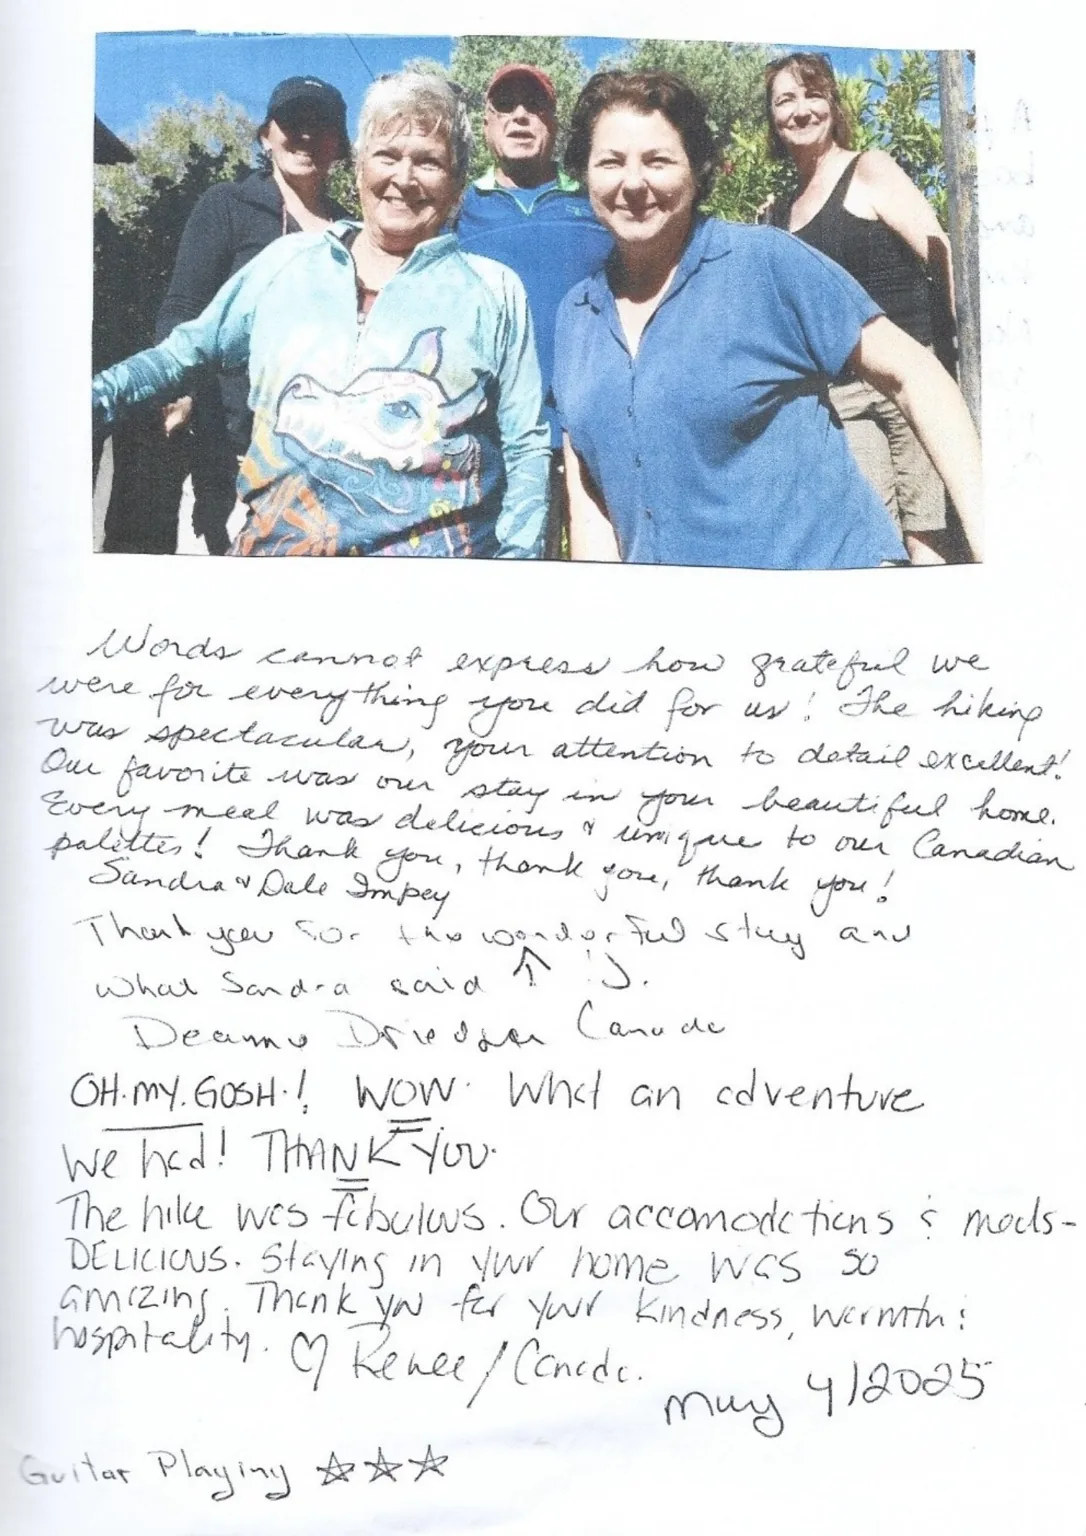 Words cannot express how grateful we
were for everything you did for us! The hiking
was spectacular, your attention to detail excellent!
Our favorite was our stay in your beautiful home.
Every meal was delicious & unique to our Canadian
palettes! Thank you, thank you, thank you!
Sandra & Dale Impey
Thank you for the wonderful stay and
what Sandra said ↑ :).
Deanna Driedger Canada
OH.MY.GOSH.! WOW. What an adventure
we had! THANK YOU.
The hike was fabulous. Our accomodations & meals-
DELICIOUS. Staying in your home was so
amazing. Thank you for your kindness, warmth &
hospitality. ♡ Renee/Canada.
May 4/2025
Guitar Playing ☆☆☆